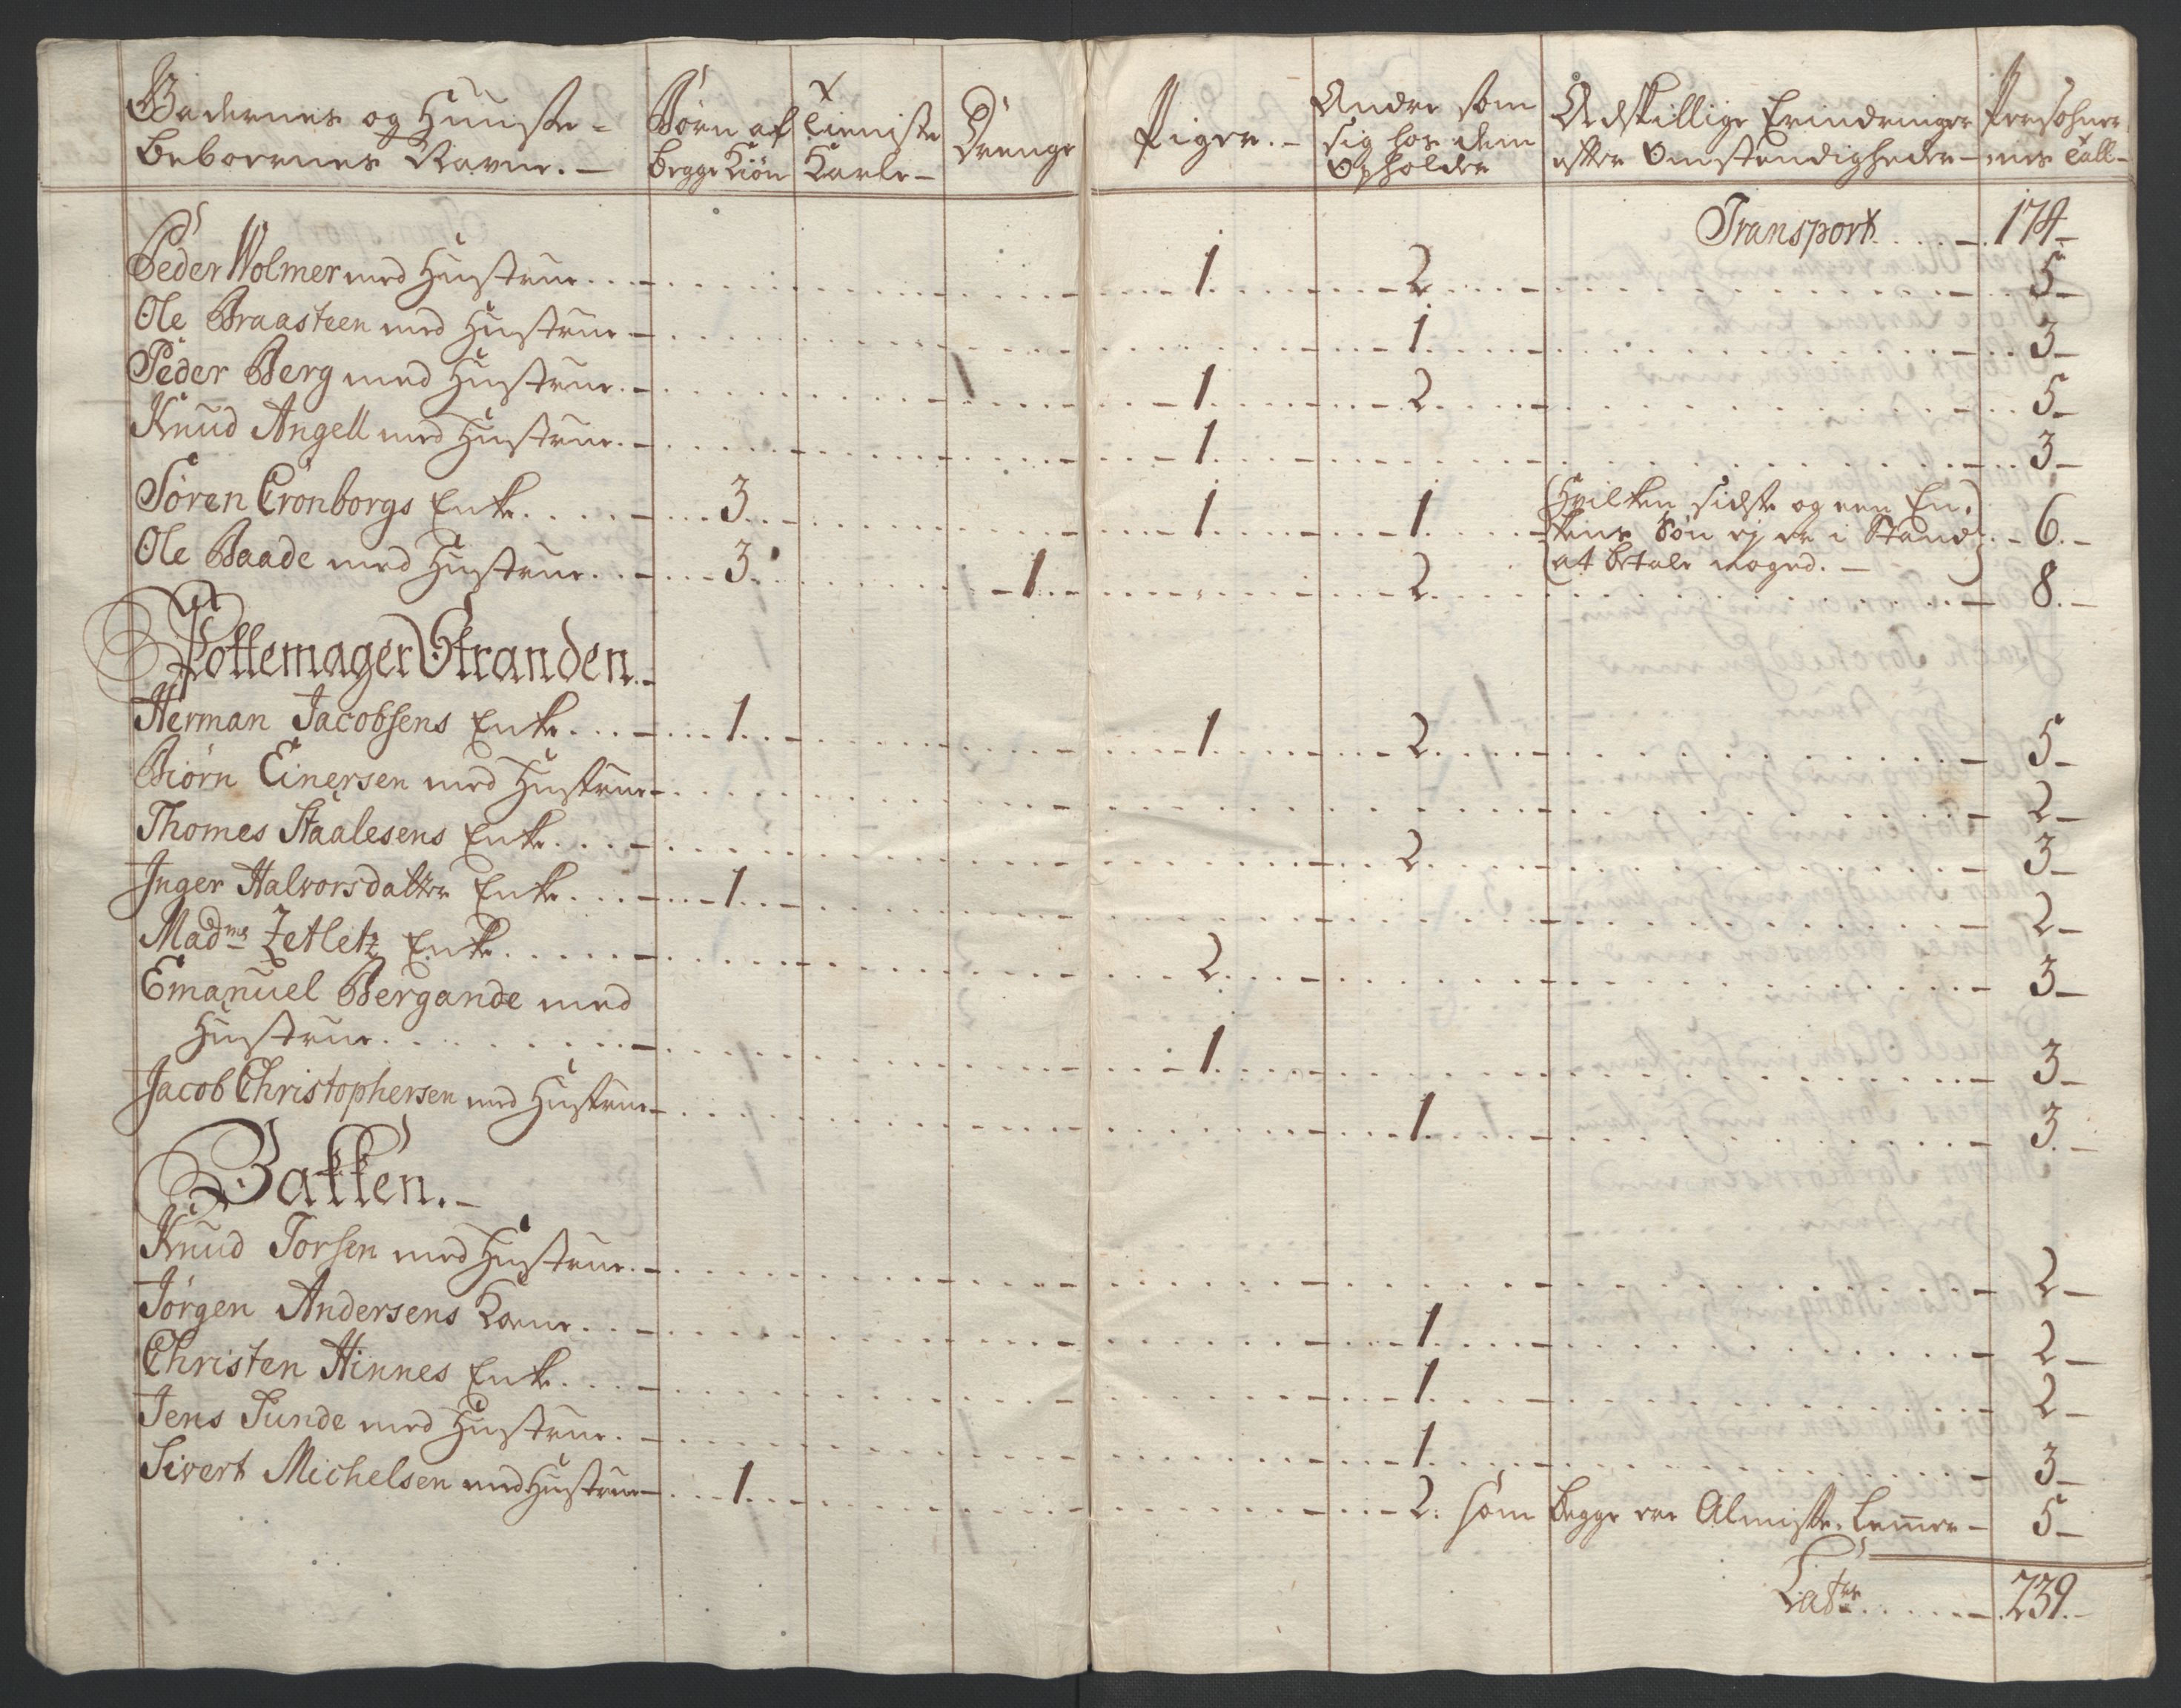 Gadernes og Huuste-
beboernes Navne. -
Børn af
begge Kiøn
Tieniste
Karle -
Drenge
Piger. -
Andre som
sig hos dem
Opholder
Adskillige Erindringer
efter Omstendigheder -
Persohner-
nes Tall -
Transport . . . . - 174 -
Peder Wolmer med Hustrue . . . - 1 . 2 . 5 -
Ole Braasteen med Hustrue - 1 . 3 -
Peder Berg med Hustrue . - 1 . 2 . 5 -
Knud Angell med Hustrue . - 1 . 3 -
Søren Cronborgs Enke . . . . - 3 . 1 . 1 . Hvilken sidste og een En- 6. -
kens Søn ej er i Stand
at betale noged. -
Ole Baade med Hustrue . . - 3 . 1 . 2 . 8. -
Pottemager Stranden. -
Herman Jacobsens Enke . . . - 1 . 1 . 2 . 5 -
Biørn Einersen med Hustrue - 2 -
Thomes Staalesens Enke . . . - 2 . 3 -
Inger Halvorsdatter Enke . . . - 1 . 2 -
Madme Zetletz Enke . . . . . - 2 . 3 -
Emanuel Bergande med
Hustrue . . . . . . . . - 1 . 3 -
Jacob Christophersen med Hustrue - 1 . 3. -
Bakken. -
Knud Torsen med Hustrue . - 2 -
Jørgen Andersens Kone . . - 1 . 2 -
Christen Hinnes Enke . . . - 1 . 2 -
Jens Tunde med Hustrue . - 1 . 3 -
Sivert Michelsen med Hustrue - 1 . 2. som begge ere Almisse-Lemmer - 5 -
Later . . . . . . - 239. -